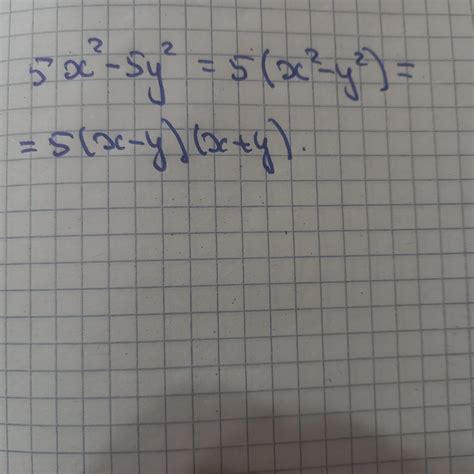 5x² - 5y² = 5(x² - y²) =
= 5(x - y)(x + y).